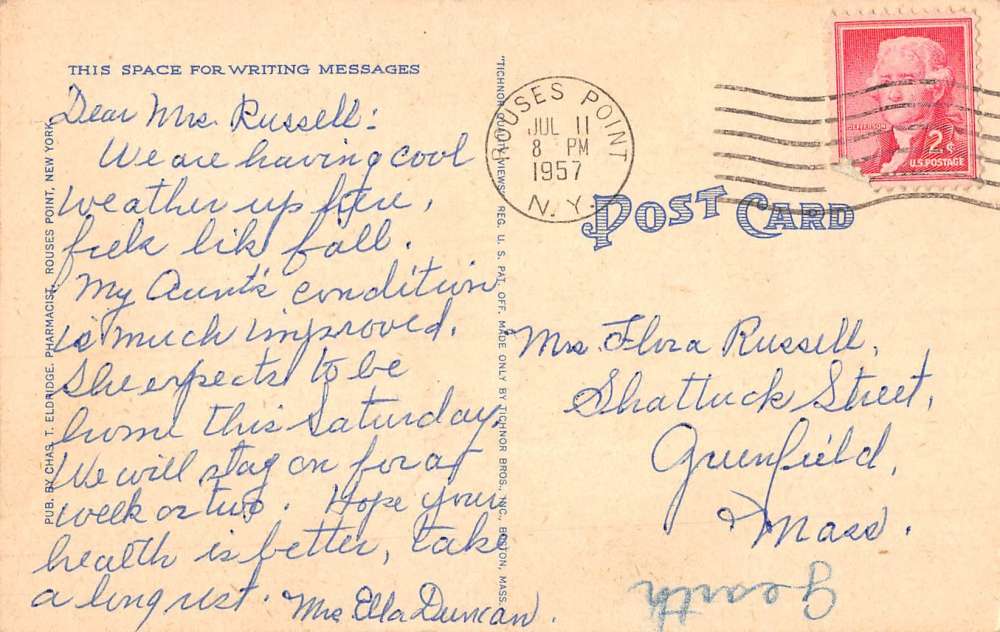 THIS SPACE FOR WRITING MESSAGES
Dear Mrs. Russell:
We are having cool
weather up here,
feels like fall.
My Aunt's condition
is much improved.
She expects to be
home this Saturday.
We will stay on for a
week or two. Hope your
health is better, take
a long rest. Mrs Ella Duncan.
PUB. BY CHAS. T. ELDRIDGE, PHARMACIST, ROUSES POINT, NEW YORK
"TICHNOR QUALITY VIEWS" REG. U. S. PAT. OFF. MADE ONLY BY TICHNOR BROS., INC., BOSTON, MASS.
ROUSES POINT
JUL 11
8 PM
1957
N.Y.
JEFFERSON
2¢
U.S. POSTAGE
POST CARD
Mrs. Flora Russell,
Shattuck Street,
Greenfield,
Mass.